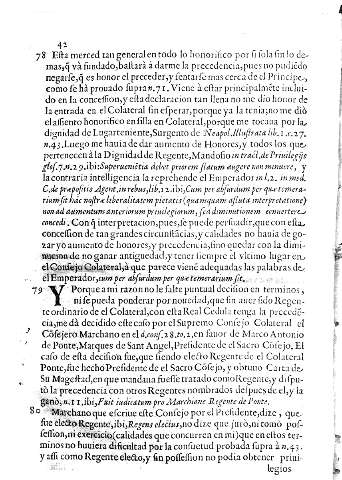 42
78 Esta merced tan general en todo lo honorifico por si sola sin lo de-
mas, q̃ va fundado, bastarà à darme la precedencia, pues no pudiẽdo
negarse, q̃ es honor el preceder, y sentarse mas cerca de el Principe,
como se hà prouado supra n. 71, Viene à estar principalmẽte inclui-
do en la concession, y esta declaracion tan llena no me diò honor de
la entrada en el Colateral sin esperar, porque ya la tenia; no me diò
el assiento honorifico en silla en Colateral, porque me tocaua por la
dignidad de Lugarteniente, Surgento de Neapol. Illustrata lib. 1. c. 27.
n. 43. Luego me hauia de dar aumento de Honores, y todos los que
pertenecen à la Dignidad de Regente, Mandosio in tract. de Priuilegijs
glos. 7. n. 29. ibi; Superaumẽtia debet priorem statum augere non minuere, y
la contraria inteligencia la reprehende el Emperador in l. 2. in med.
C. de præpositis Agent. in rebus, lib. 12. ibi, Cum per absurdum per que temera-
rium sit hac nostræ liberalitatem pietatis (quamquam astuta interpretatione)
non ad aumentum anteriorum priuilegiorum, sed diminutionem remurtere
concedi. Con q̃ interpretacion, pues, se puede persuadir, que con esta
concession de tan grandes circunstãcias, y calidades no hauia de go-
zar yo aumento de honores, y precedencia, sino quedar con la dimi-
nucion de no ganar antiguedad, y tener siempre el vltimo lugar en
el Consejo Colateral, à que parece vienẽ adequadas las palabras de
el Emperador, cum per absurdum per que temerarium sit.
79 Y Porque a mi razon no le falte puntual decision en terminos,
ni se pueda ponderar por nouedad, que sin auer sido Regen-
te ordinario de el Colateral, con esta Real Cedula tenga la precedẽ-
cia, me dà decidido este caso por el Supremo Consejo Colateral el
Cõsejero Marchano en el d. cons. 28. n. 2. en fauor de Marco Antonio
de Ponte, Marques de Sant Angel, Presidente de el Sacro Cõsejo. El
caso de esta decision fue, que siendo electo Regente de el Colateral
Ponte, fue hecho Presidente de el Sacro Cõsejo, y obtuuo Carta de
Su Magestad, en que mandana fuesse tratado como Regente, y dispu-
tò la precedencia con otros Regentes nombrados despues de el, y la
ganò, n. 11. ibi, Fuit iudicatum pro Marchiane Regente de Ponte.
80 Marchano que escriue este Consejo por el Presidente, dize, que
fue electo Regente, ibi, Regens electus, no dize que jurò, ni tomò pos-
session, ni exercicio (calidades que concurren en mi) que en estos ter-
minos no huuiera dificultad por la consuetud probada supra à n. 43.
y assi como Regente electo, y sin possession no podia obtener priui-
legios